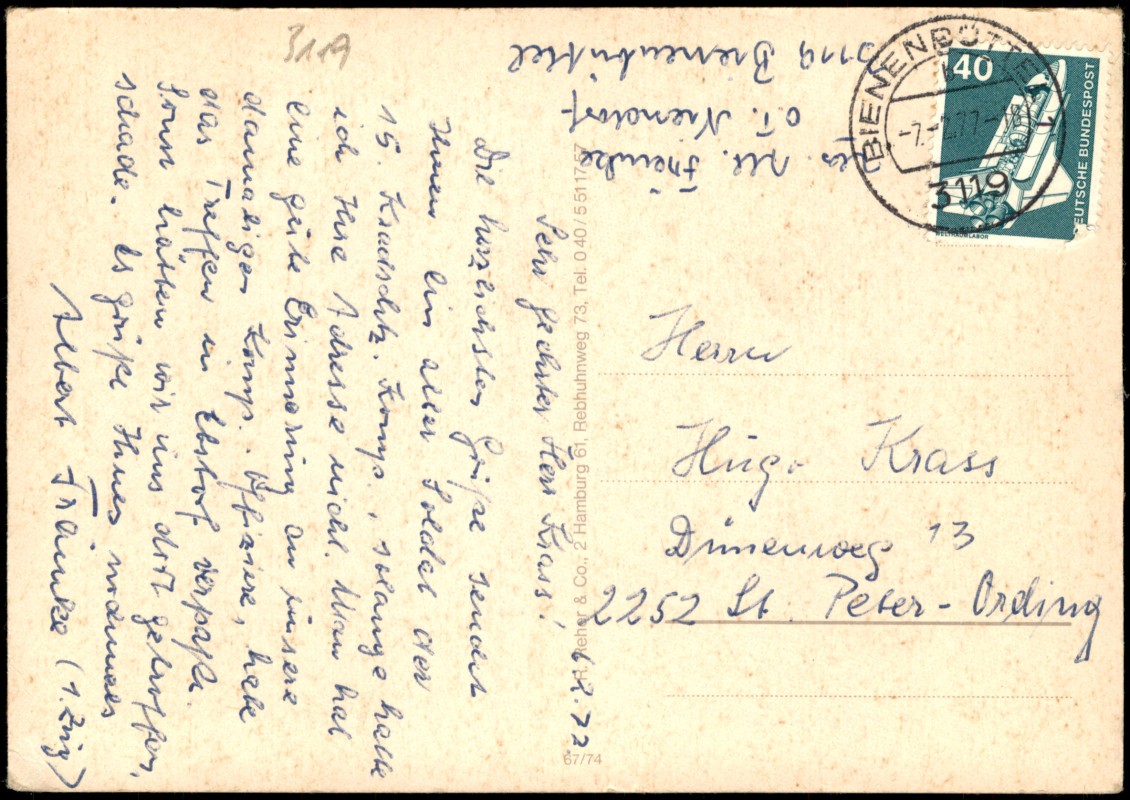 3119
3119 Bienenbüttel
OT. Niendorf
Abs. Alb. Träinke
BIENENBÜTTEL 1
-7.-2.77-18
3119
40
DEUTSCHE BUNDESPOST
WELTRAUMLABOR
6.2.77
Sehr geehrter Herr Krass!
Die herzlichsten Grüße sendet
Ihnen ein alter Soldat der
15. Kradschtz. Komp., solange hatte
ich Ihre Adresse nicht. Man hat
eine gute Erinnerung an unsere
damaligen Komp. Offiziere, habe
das Treffen in Ebstorf verpaßt.
Sonst hätten wir uns dort getroffen,
schade. Es grüßt Ihnen nochmals
Albert Träinke (1. Zug)
Herrn
Hugo Krass
Dünenweg 13
2252 St. Peter-Ording
& Co., 2 Hamburg 61, Rebhuhnweg 73, Tel. 040/5511757
67/74